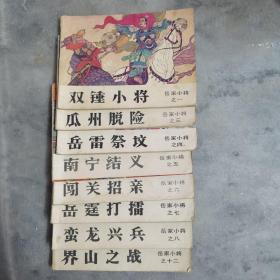 双锤小将
岳家小将
之一
瓜州脱险
岳家小将
之三
岳雷祭坟
岳家小将
之四
南宁结义
岳家小将
之五
闯关招亲
岳家小将
之六
岳霆打擂
岳家小将
之七
蛮龙兴兵
岳家小将
之八
界山之战
岳家小将
之十二